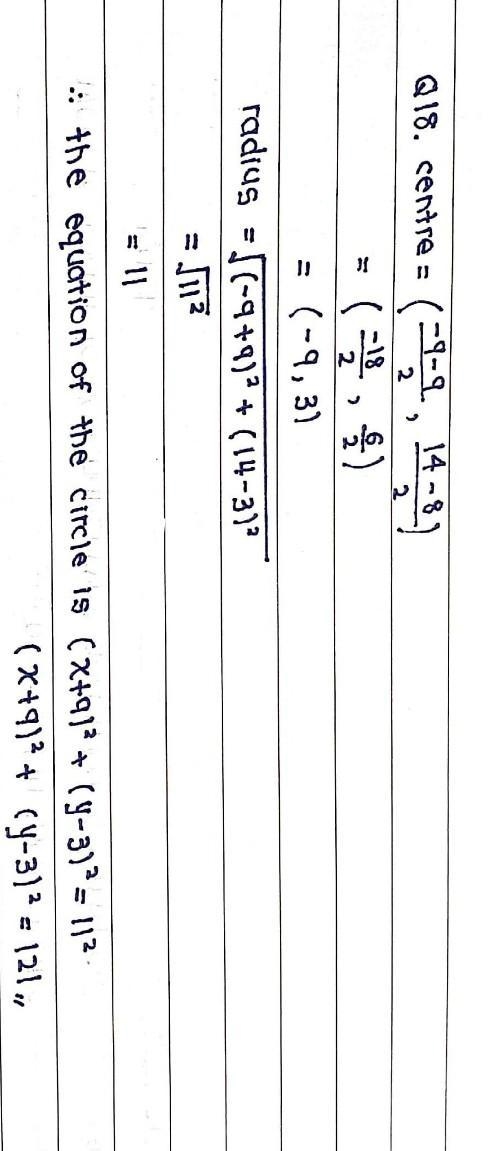 Q18. centre = (-9-9/2, 14-8/2)
= (-18/2, 6/2)
= (-9, 3)
radius = √(-9+9)² + (14-3)²
= √11²
= 11
∴ the equation of the circle is (x+9)² + (y-3)² = 11².
(x+9)² + (y-3)² = 121〃